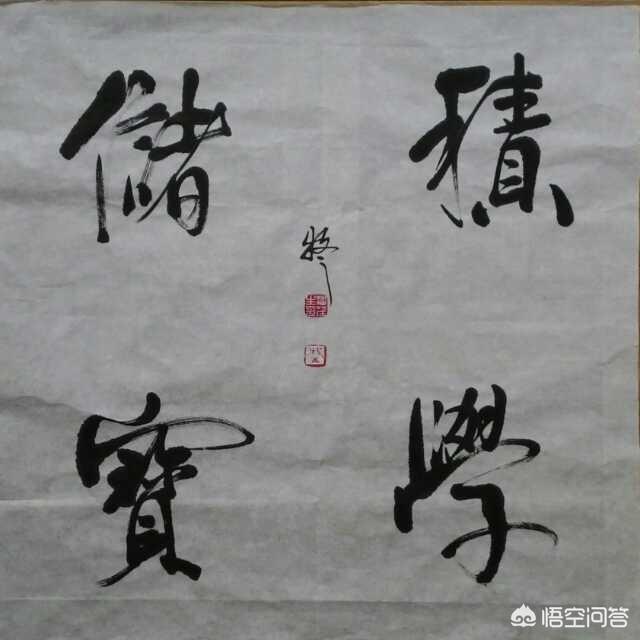 積學
儲寶
悟空问答